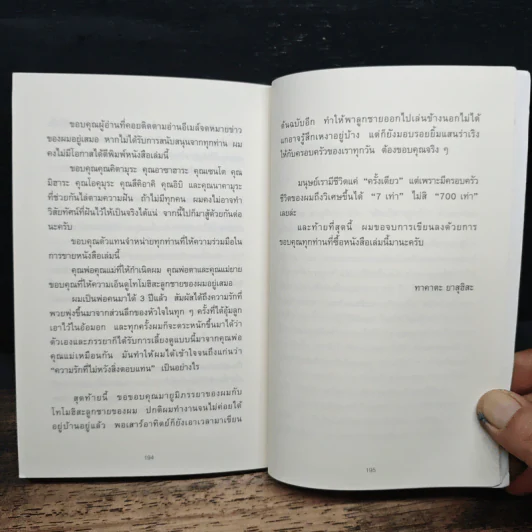 ขอบคุณผู้อ่านที่คอยติดตามอ่านอีเมล์จดหมายข่าว
ของผมอยู่เสมอ หากไม่ได้รับการสนับสนุนจากทุกท่าน ผม
คงไม่มีโอกาสได้ตีพิมพ์หนังสือเล่มนี้
ขอบคุณคุณคิตามุระ คุณอาซาฮาระ คุณเซนโต คุณ
มิฮาระ คุณโอคุมุระ คุณลีคิอาคิ คุณอิบิ และคุณนาคามุระ
ที่ช่วยกันไล่ตามความฝัน ถ้าไม่มีทุกคน ผมคงไม่อาจทำ
วิสัยทัศน์ที่ฝันไว้ให้เป็นจริงได้แน่ จากนี้ไปก็มาสู้ด้วยกันต่อ
นะครับ
ขอบคุณตัวแทนจำหน่ายทุกท่านที่ให้ความร่วมมือใน
การขายหนังสือเล่มนี้
คุณพ่อคุณแม่ที่ให้กำเนิดผม คุณพ่อตาและคุณแม่ยาย
ขอบคุณที่ให้ความเอ็นดูโทโมฮิสะลูกชายของผมอยู่เสมอ
ผมเป็นพ่อคนมาได้ 3 ปีแล้ว สัมผัสได้ถึงความรักที่
พวยพุ่งขึ้นมาจากส่วนลึกของหัวใจในทุก ๆ ครั้งที่ได้อุ้มลูก
เอาไว้ในอ้อมอก และทุกครั้งผมก็จะตระหนักขึ้นมาได้ว่า
ตัวเองและภรรยาก็ได้รับการเลี้ยงดูแบบนี้มาจากคุณพ่อ
คุณแม่เหมือนกัน มันทำให้ผมได้เข้าใจจนถึงแก่นว่า
“ความรักที่ไม่หวังสิ่งตอบแทน” เป็นอย่างไร
สุดท้ายนี้ ขอขอบคุณมายูมิภรรยาของผมกับ
โทโมฮิสะลูกชายของผม ปกติผมทำงานจนไม่ค่อยได้
อยู่บ้านอยู่แล้ว พอเสาร์อาทิตย์ก็ยังเอาเวลามาเขียน
194
ต้นฉบับอีก ทำให้พาลูกชายออกไปเล่นข้างนอกไม่ได้
แกอาจรู้สึกเหงาอยู่บ้าง แต่ก็ยังมอบรอยยิ้มแสนร่าเริง
ให้กับครอบครัวของเราทุกวัน ต้องขอบคุณจริง ๆ
มนุษย์เรามีชีวิตแค่ “ครั้งเดียว” แต่เพราะมีครอบครัว
ชีวิตของผมถึงวิเศษขึ้นได้ “7 เท่า” ไม่สิ “700 เท่า”
เลยล่ะ
และท้ายที่สุดนี้ ผมขอจบการเขียนลงด้วยการ
ขอบคุณทุกท่านที่ซื้อหนังสือเล่มนี้มานะครับ
ทาคาตะ ยาสุฮิสะ
195